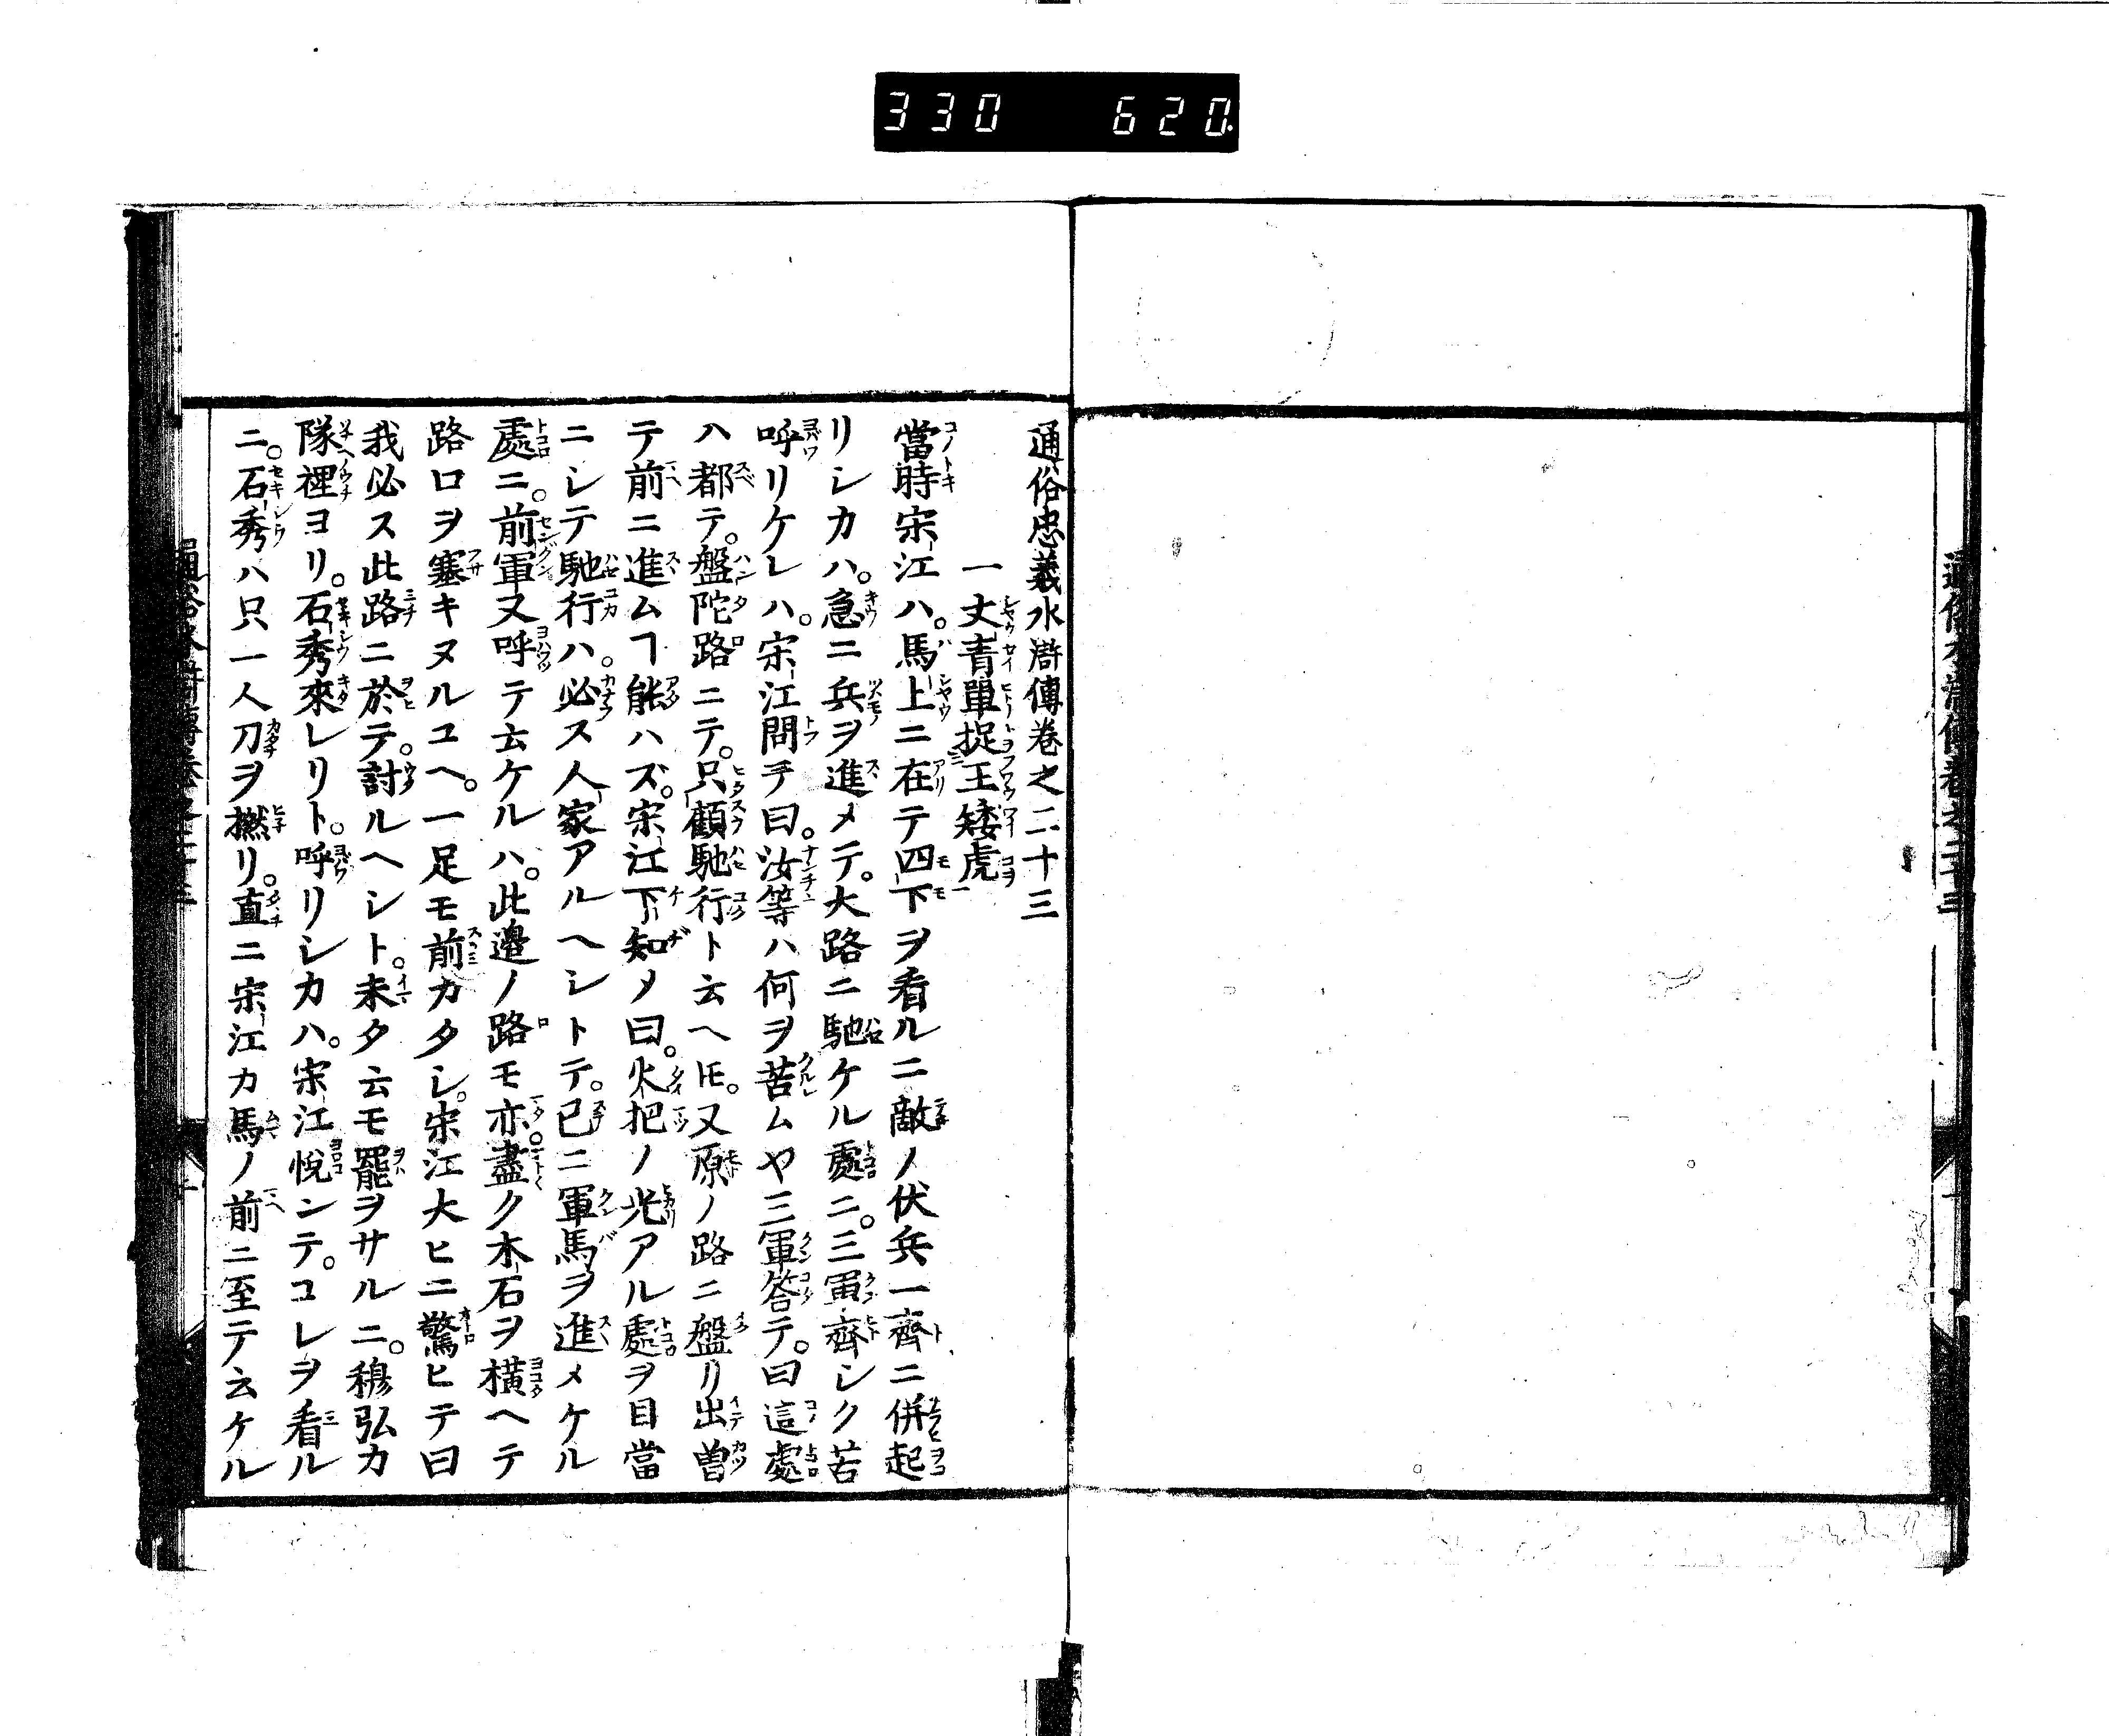 330 620
通俗忠義水滸傳卷之二十三
一丈青單捉王矮虎
當時宋江ハ。馬上ニ在テ四下ヲ看ルニ敵ノ伏兵一齊ニ併起
リシカハ。急ニ兵ヲ進メテ。大路ニ馳ケル處ニ。三軍齊シク苦
呼リケレハ。宋江問テ曰。汝等ハ何ヲ苦ムヤ三軍答テ。曰這處
ハ都テ。盤陀路ニテ。只顧馳行ト云ヘ𪜈。又原ノ路ニ盤リ出曽
テ前ニ進ムヿ能ハズ。宋江下知メ曰。火把ノ光アル處ヲ目當
ニシテ馳行ハ。必ス人家アルヘシトテ。已ニ軍馬ヲ進メケル
處ニ。前軍又呼テ云ケルハ。此邊ノ路モ亦。盡ク木石ヲ橫ヘテ
路口ヲ塞キヌルユヘ。一足モ前カタシ。宋江大ヒニ驚ヒテ曰
我必ス此路ニ於テ。討ルヘシト。未タ云モ罷ヲサルニ。穆弘カ
隊裡ヨリ。石秀來レリト。呼リシカハ。宋江悅ンテ。コレヲ看ル
ニ。石秀ハ只一人刀ヲ撚リ。直ニ宋江カ馬ノ前ニ至テ云ケル